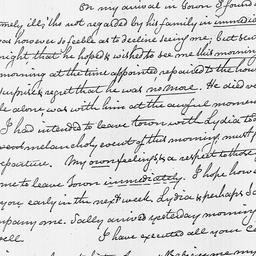 On my arrival in Town I found
mely ill, tho not regarded by his family in immedia
was however so feeble as to decline seeing me, but sen
night that he hoped & wished to see me this morning
morning at the time appointed repaired to the hou
surprise & regret that he was no more. He died ve
le alone was with him at the awful momen
I had intended to leave town with Lydia tod
melancholy event of this morning must p
departure. My own feelings & a respect to those
me to leave Town immediately. I hope howe
you early in the next week. Lydia & perhaps Sa
mpany me. Sally arrived yesterday morning
well. I have executed all your C